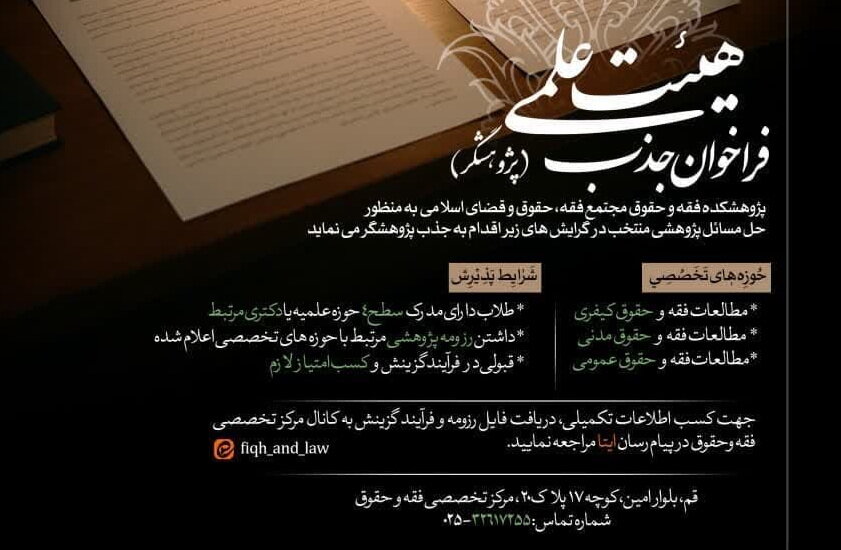 هیئت علمی
فراخوان جذب (پژوهشگر)
پژوهشکده فقه و حقوق مجتمع فقه، حقوق و قضای اسلامی به منظور
حل مسائل پژوهشی منتخب در گرایش های زیر اقدام به جذب پژوهشگر می نماید
حوزه‌های تخصصی
* مطالعات فقه و حقوق کیفری
* مطالعات فقه و حقوق مدنی
* مطالعات فقه و حقوق عمومی
شرایط پذیرش
* طلاب دارای مدرک سطح ۴ حوزه علمیه یا دکتری مرتبط
* داشتن رزومه پژوهشی مرتبط با حوزه های تخصصی اعلام شده
* قبولی در فرآیند گزینش و کسب امتیاز لازم
جهت کسب اطلاعات تکمیلی، دریافت فایل رزومه و فرآیند گزینش به کانال مرکز تخصصی
فقه وحقوق در پیام رسان ایتا مراجعه نمایید.
fiqh_and_law
قم، بلوار امین، کوچه ۱۷ پلاک ۲۰، مرکز تخصصی فقه و حقوق
شماره تماس: ۳۲۶۱۷۲۵۵-۰۲۵